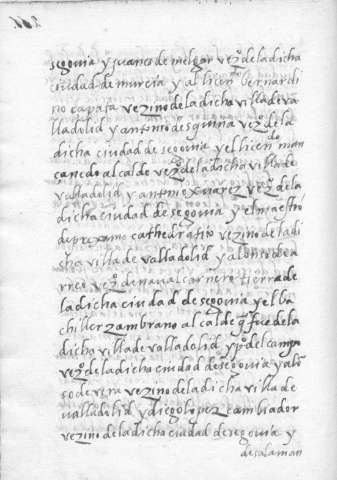 segouia y juanes de melgar vezº de la dicha
ciudad de murcia y al licenᵈᵒ bernardi
no çapata vezino de la dicha villa de va
lladolid y antonio desguina vezº de la
dicha ciudad de segouia y el licenᵈᵒ man
çanedo alcalde vezº de la dicha villa de
valladolid y antonio xuarez vezº de la
dicha ciudad de segouia y el maestro
de prexamo cathedratico vezino de la di
cha villa de valladolid y alonso de a
vezº de naualcarnero tierra de
la dicha ciudad de segouia y el ba
chiller zambrano alcalde q̃ fue de la
dicha villa de valladolid y pº del campo
vezº de la dicha ciudad de segouia y alõ
so de vera vezino de la dicha villa de
ualladolid y diego lopez cambiador
vezino de la dicha ciudad de segouia y
de salaman